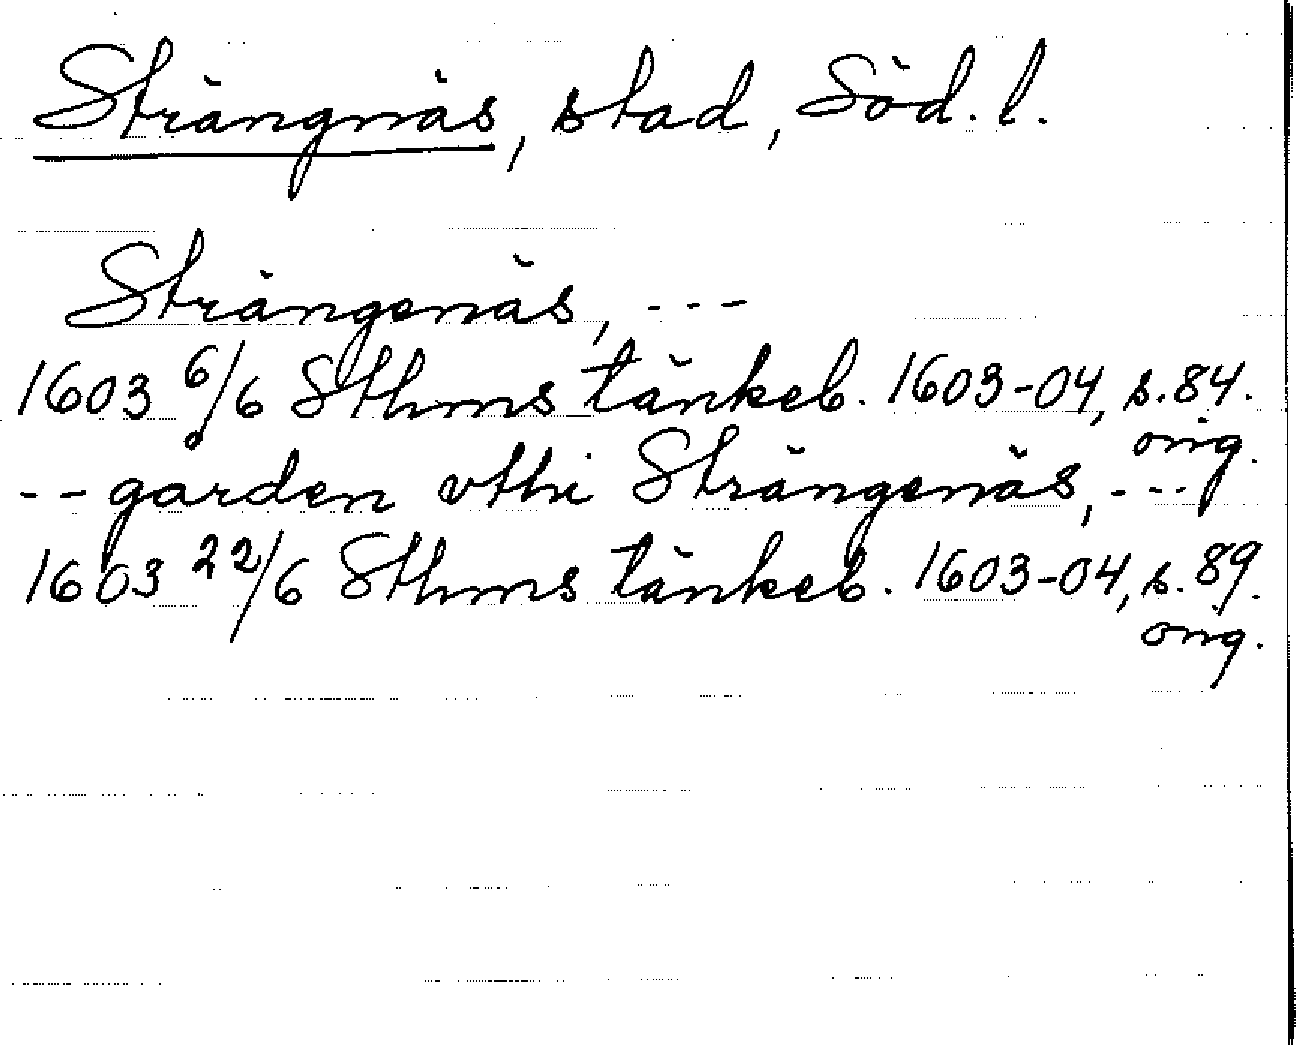 Strängnäs, stad, Söd. l.
Strängenäs, ---
1603 6/6 Sthms tänkeb. 1603-04, s. 84.
orig.
--gården vthi Strängenäs, ---
1603 22/6 Sthms tänkeb. 1603-04, s. 89.
orig.